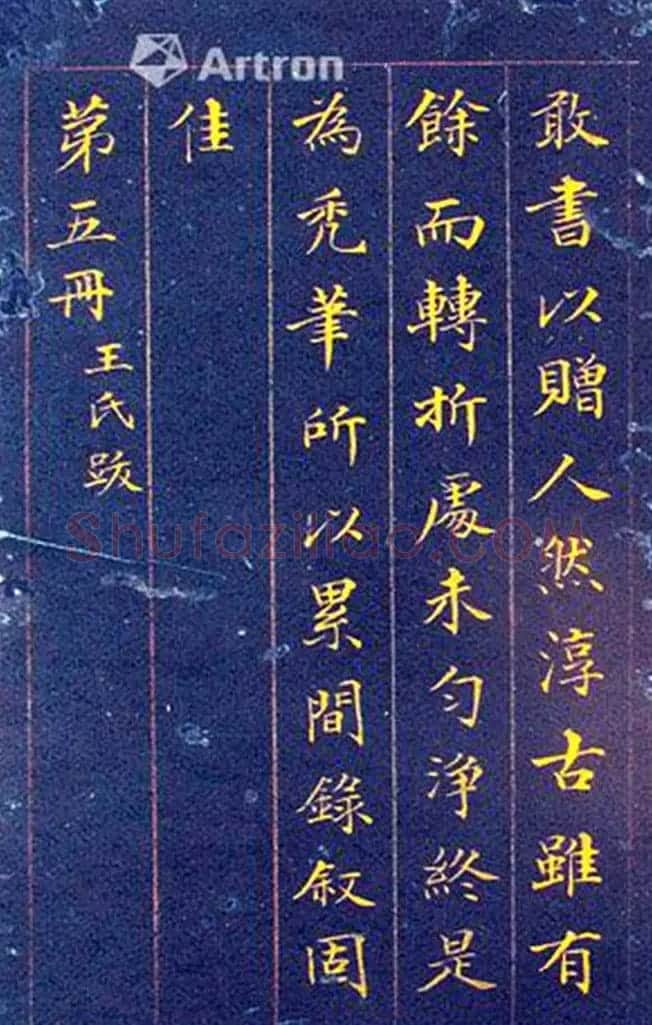 敢書以贈人然淳古雖有
餘而轉折處未勻淨終是
為禿筆所以累間錄叙固
佳
第五冊王氏跋
Artron
Shufaziliao.com